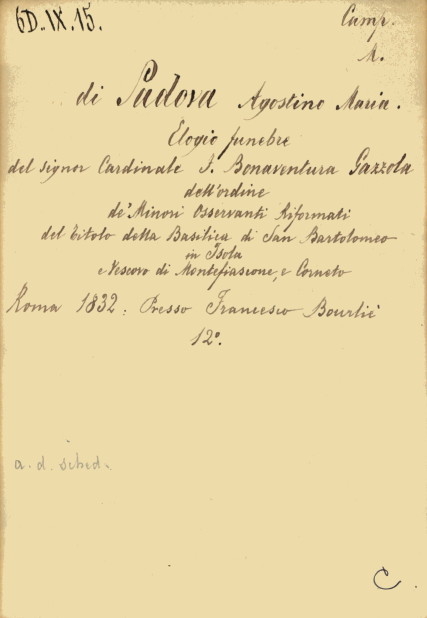 6D.IX.15.
Camp.
M.
di Padova Agostino Maria.
Elogio funebre
del signor Cardinale F. Bonaventura Gazzola
dell'ordine
de' Minori Osservanti Riformati
del titolo della Basilica di San Bartolomeo
in Isola
e Vescovo di Montefiascone, e Corneto
Roma 1832: Presso Francesco Bourliè
12°.
a. d. sched.
C.